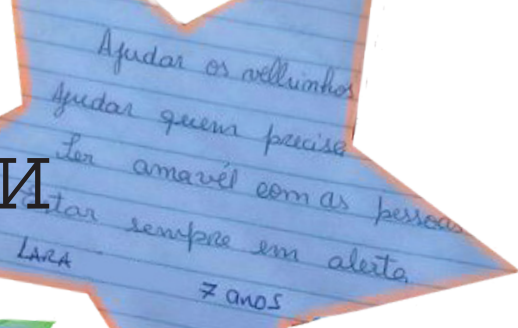 Ajudar os velhinhos
Ajudar quem precisa
Ser amavél com as pessoas
Estar sempre em alerta
LARA
7 anos
И